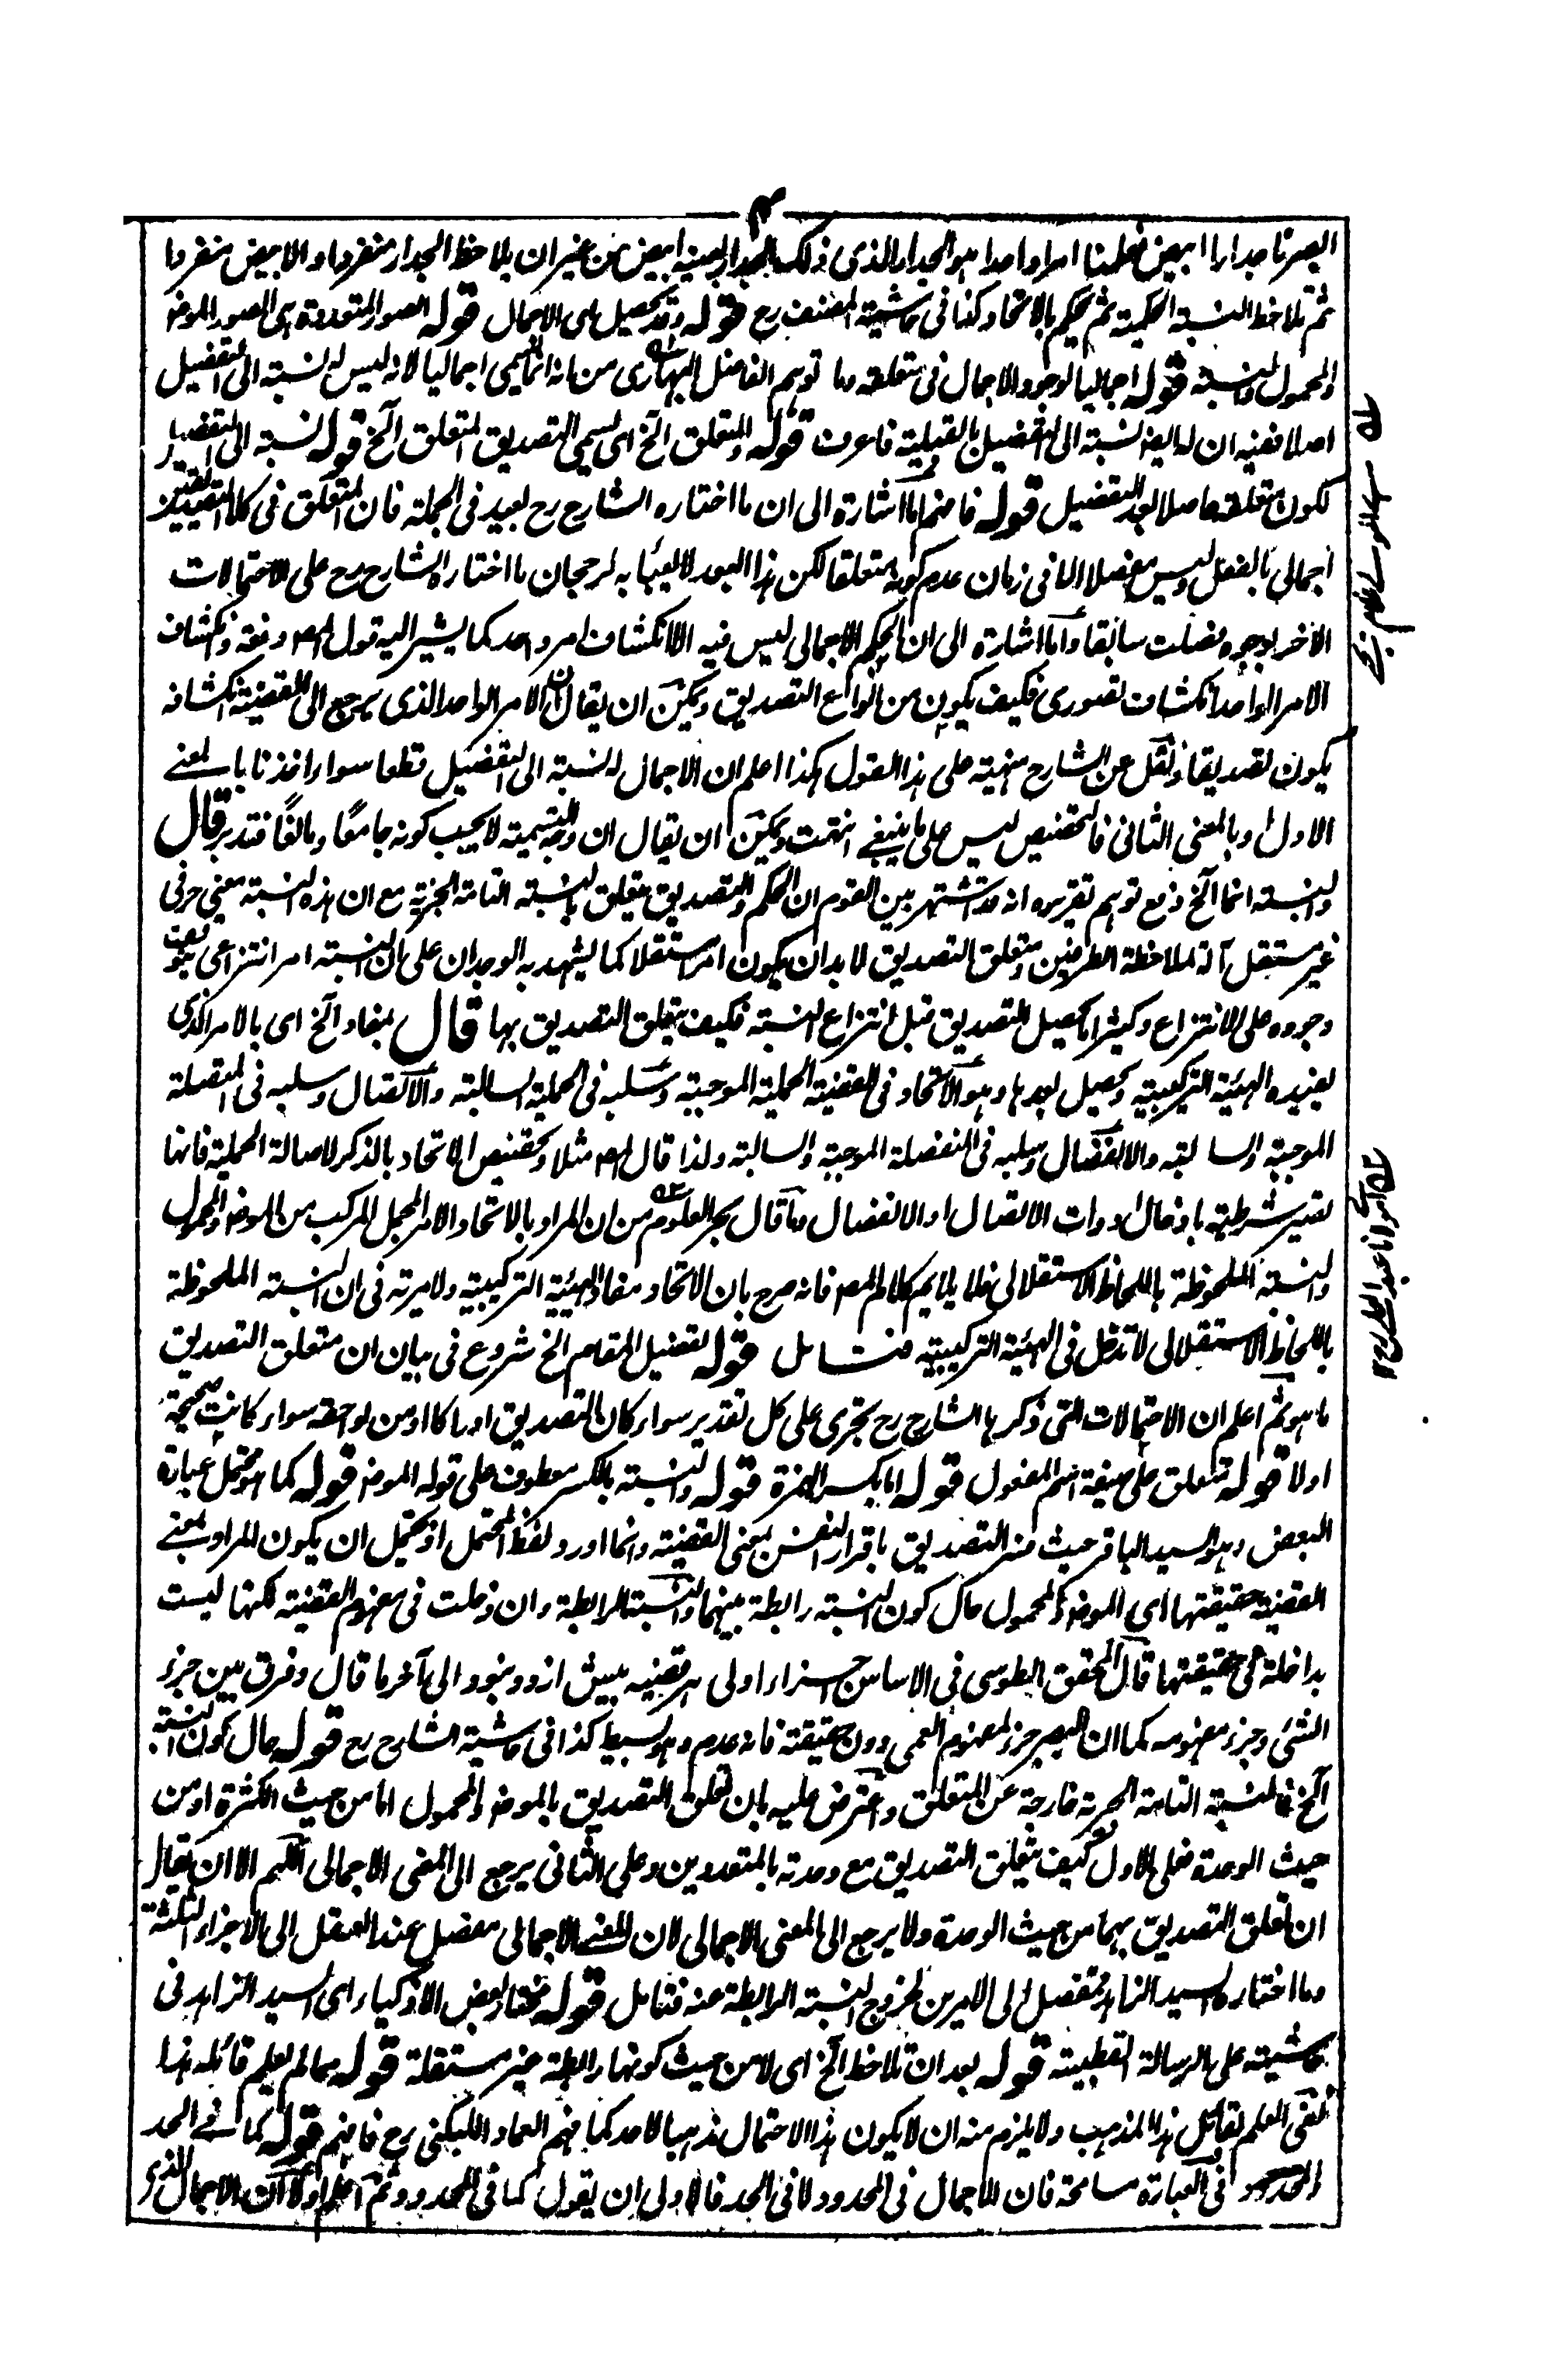 ۴
ابصرنا جدارا ابيض فعلمنا امرا واحدا هو الجدار الذى ذلك الجدار بعينه ابيض من غير ان يلاحظ الجدار منفردا والابيض منفردا
ثم يلاحظ النسبة الحكمية ثم يحكم بالاتحاد كذا فى حاشية المصنف رح قوله وقد يحصل اى الاجمال قوله الصور المتعددة اى الصور الموضوع
والمحمول والنسبة قوله اجماليا لوجود الاجمال فى متعلقه وما توهم الفاضل البهارى من انه انما يسمى اجماليا لانه ليس له نسبة الى التفصيل
اصلا ففيه ان له ايضا نسبة الى التفصيل بالقبلية فاعرف قوله والمتعلق الخ اى يسمى التصديق المتعلق الخ قوله نسبة الى التفصيل
لكون متعلقه حاصلا بعد التفصيل قوله فافهم اما اشارة الى ان ما اختاره الشارح رح بعيد فى الجملة فان المتعلق فى كلا التصديقين
اجمالى بالفعل وليس مفصلا الا فى زمان عدم كونه متعلقا لكن هذا البعد لا يعبأ به لرجحان ما اختاره الشارح رح على الاحتمالات
الاخر بوجوه فصلت سابقا واما اشارة الى ان الحكم الاجمالى ليس فيه الا انكشاف امر واحد كما يشير اليه قول المصـ دفعة وانكشاف
الامر الواحد انكشاف تصورى فكيف يكون من انواع التصديق ويمكن ان يقال ان الامر الواحد الذى يرجع الى القضية انكشافه
يكون تصديقا ونقل عن الشارح منهية على هذا القول هكذا اعلم ان الاجمال له نسبة الى التفصيل قطعا سواء اخذناه بالمعنى
الاول او بالمعنى الثانى فالتخصيص ليس على ما ينبغى انتهت ويمكن ان يقال ان وجه التسمية لا يجب كونه جامعًا ومانعًا فتدبر قال
والنسبة انما الخ دفع توهم تقريره انه قد اشتهر بين القوم ان الحكم والتصديق يتعلق بالنسبة التامة الخبرية مع ان هذه النسبة معنى حرفى
غير مستقل آلة لملاحظة الطرفين ومتعلق التصديق لا بد ان يكون امرا مستقلا كما يشهد به الوجدان على ان النسبة امر انتزاعى يتوقف
وجوده على الانتزاع وكثيرا ما يحصل التصديق قبل انتزاع النسبة فكيف يتعلق التصديق بها قال بمفاد الخ اى بالامر الذى
يفيده الهيئة التركيبية ويحصل بعدها وهو الاتحاد فى القضية الحملية الموجبة وسلبه فى الحملية السالبة والاتصال وسلبه فى المتصلة
الموجبة والسالبة والانفصال وسلبه فى المنفصلة الموجبة والسالبة ولذا قال المصـ مثلا وتخصيص الاتحاد بالذكر لاصالة الحملية فانها
تصير شرطية بادخال ادوات الاتصال او الانفصال وما قال بحر العلوم من ان المراد بالاتحاد الامر المجمل المركب من الموضوع والمحمول
والنسبة الملحوظة باللحاظ الاستقلالى فلا يلايم كلام المصـ فانه صرح بان الاتحاد مفاد الهيئة التركيبية ولا مرية فى ان النسبة الملحوظة
باللحاظ الاستقلالى لا تدخل فى الهيئة التركيبية فتأمل قوله تفصيل المقام الخ شروع فى بيان ان متعلق التصديق
ما هو ثم اعلم ان الاحتمالات التى ذكرها الشارح رح تجرى على كل تقدير سواء كان التصديق ادراكا او من لواحقه سواء كانت صحيحة
او لا قوله متعلق على صيغة اسم المفعول قوله اما بكسر الهمزة قوله والنسبة بالكسر معطوف على قوله الموضوع قوله كما هو محتمل عبارة
البعض وهو السيد الباقر حيث فسر التصديق باقرار النفس بمعنى القضية وانما اورد لفظ المحتمل اذ يحتمل ان يكون المراد بمعنى
القضية حقيقتها اى الموضوع والمحمول حال كون النسبة رابطة بينهما والنسبة الرابطة وان دخلت فى مفهوم القضية لكنها ليست
بداخلة فى حقيقتها قال المحقق الطوسى فى الاساس اجزاء اولى هر قضيه بيش از دو نبود الى آخر ما قال وفرق بين جزء
الشئ وجزء مفهومه كما ان البصر جزء لمفهوم العمى دون حقيقته فانه عدم وهو بسيط كذا فى حاشية الشارح رح قوله حال كون النسبة
الخ فالنسبة التامة الخبرية خارجة عن المتعلق واعترض عليه بان تعلق التصديق بالموضوع والمحمول اما من حيث الكثرة او من
حيث الوحدة فعلى الاول كيف يتعلق التصديق مع وحدته بالمتعددين وعلى الثانى يرجع الى المعنى الاجمالى اللهم الا ان يقال
ان تعلق التصديق بهما من حيث الوحدة ولا يرجع الى المعنى الاجمالى لان المعنى الاجمالى مفصل عند العقل الى الاجزاء الثلثة
وما اختاره السيد الزاهد مفصل الى الامرين لخروج النسبة الرابطة عنه فتامل قوله مختار بعض الاذكياء اى السيد الزاهد فى
حاشيته على الرسالة القطبية قوله بعد ان تلاحظ الخ اى لا من حيث كونها رابطة غير مستقلة قوله مما لم يعلم قائله هذا
نفى العلم بقائل هذا المذهب ولا يلزم منه ان لا يكون هذا الاحتمال مذهبا لاحد كما فهم العماد اللبكنى رح فافهم قوله كما فى الحد
والمحدود فى العبارة مسامحة فان للاجمال فى المحدود لا فى الحد فالاولى ان يقول كما فى المحدود ثم اعلم اولا ان الاجمال الذى